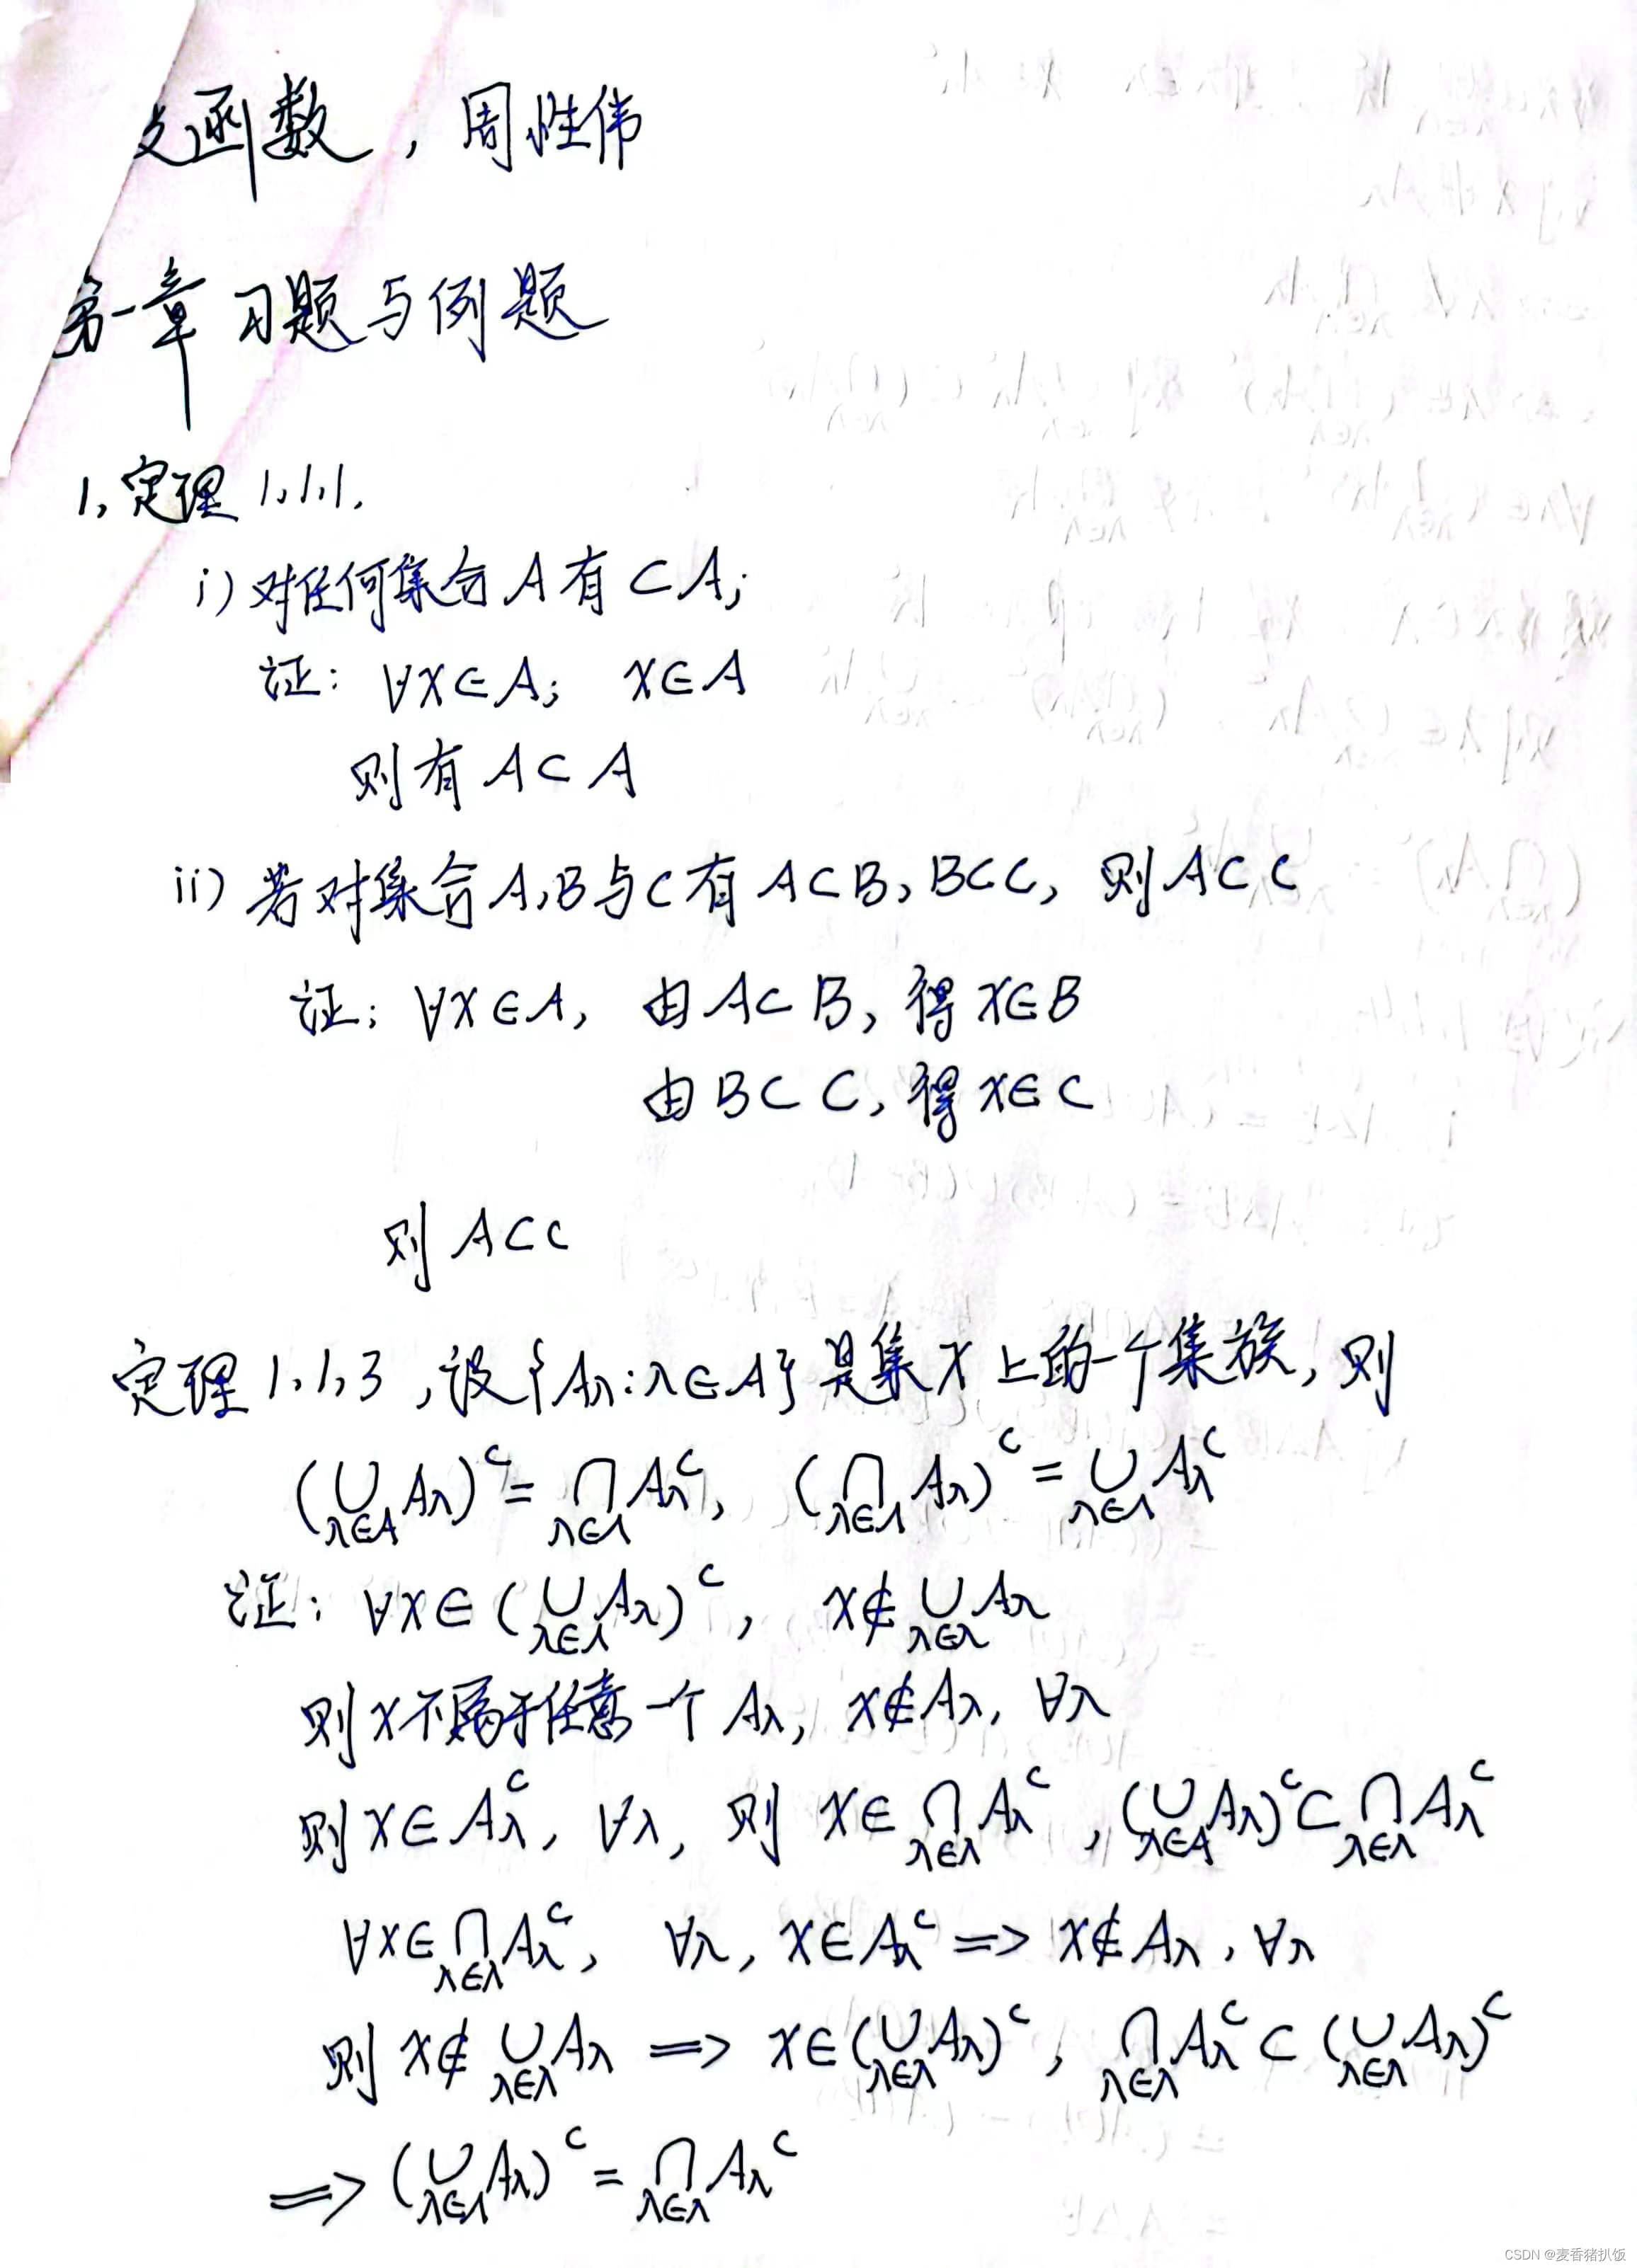 函数，周性伟
第一章 习题与例题
1, 定理 1,1,1.
i) 对任何集合 A 有 ⊂ A;
证: ∀x∈A; x∈A
则有 A⊂A
ii) 若对集合 A,B与C有 A⊂B, B⊂C, 则 A⊂C
证: ∀x∈A, 由 A⊂B, 得 x∈B
由 B⊂C, 得 x∈C
则 A⊂C
定理 1,1,3 ,设{Aλ:λ∈A}是集X上的一个集族, 则
(∪_{λ∈A} Aλ)^c = ∩_{λ∈Λ} Aλ^c, (∩_{λ∈Λ} Aλ)^c = ∪_{λ∈Λ} Aλ^c
证: ∀x∈(∪_{λ∈Λ} Aλ)^c, x∉∪_{λ∈λ} Aλ
则x不属于任意一个 Aλ, x∉Aλ, ∀λ
则 x∈Aλ^c, ∀λ, 则 x∈∩_{λ∈λ} Aλ^c, (∪_{λ∈A} Aλ)^c⊂∩_{λ∈λ} Aλ^c
∀x∈∩_{λ∈λ} Aλ^c, ∀λ, x∈Aλ^c ⇒ x∉Aλ, ∀λ
则 x∉∪_{λ∈λ} Aλ ⇒ x∈(∪_{λ∈λ} Aλ)^c, ∩_{λ∈λ} Aλ^c ⊂ (∪_{λ∈λ} Aλ)^c
⇒ (∪_{λ∈Λ} Aλ)^c = ∩_{λ∈λ} Aλ^c
CSDN @麦香猪扒饭